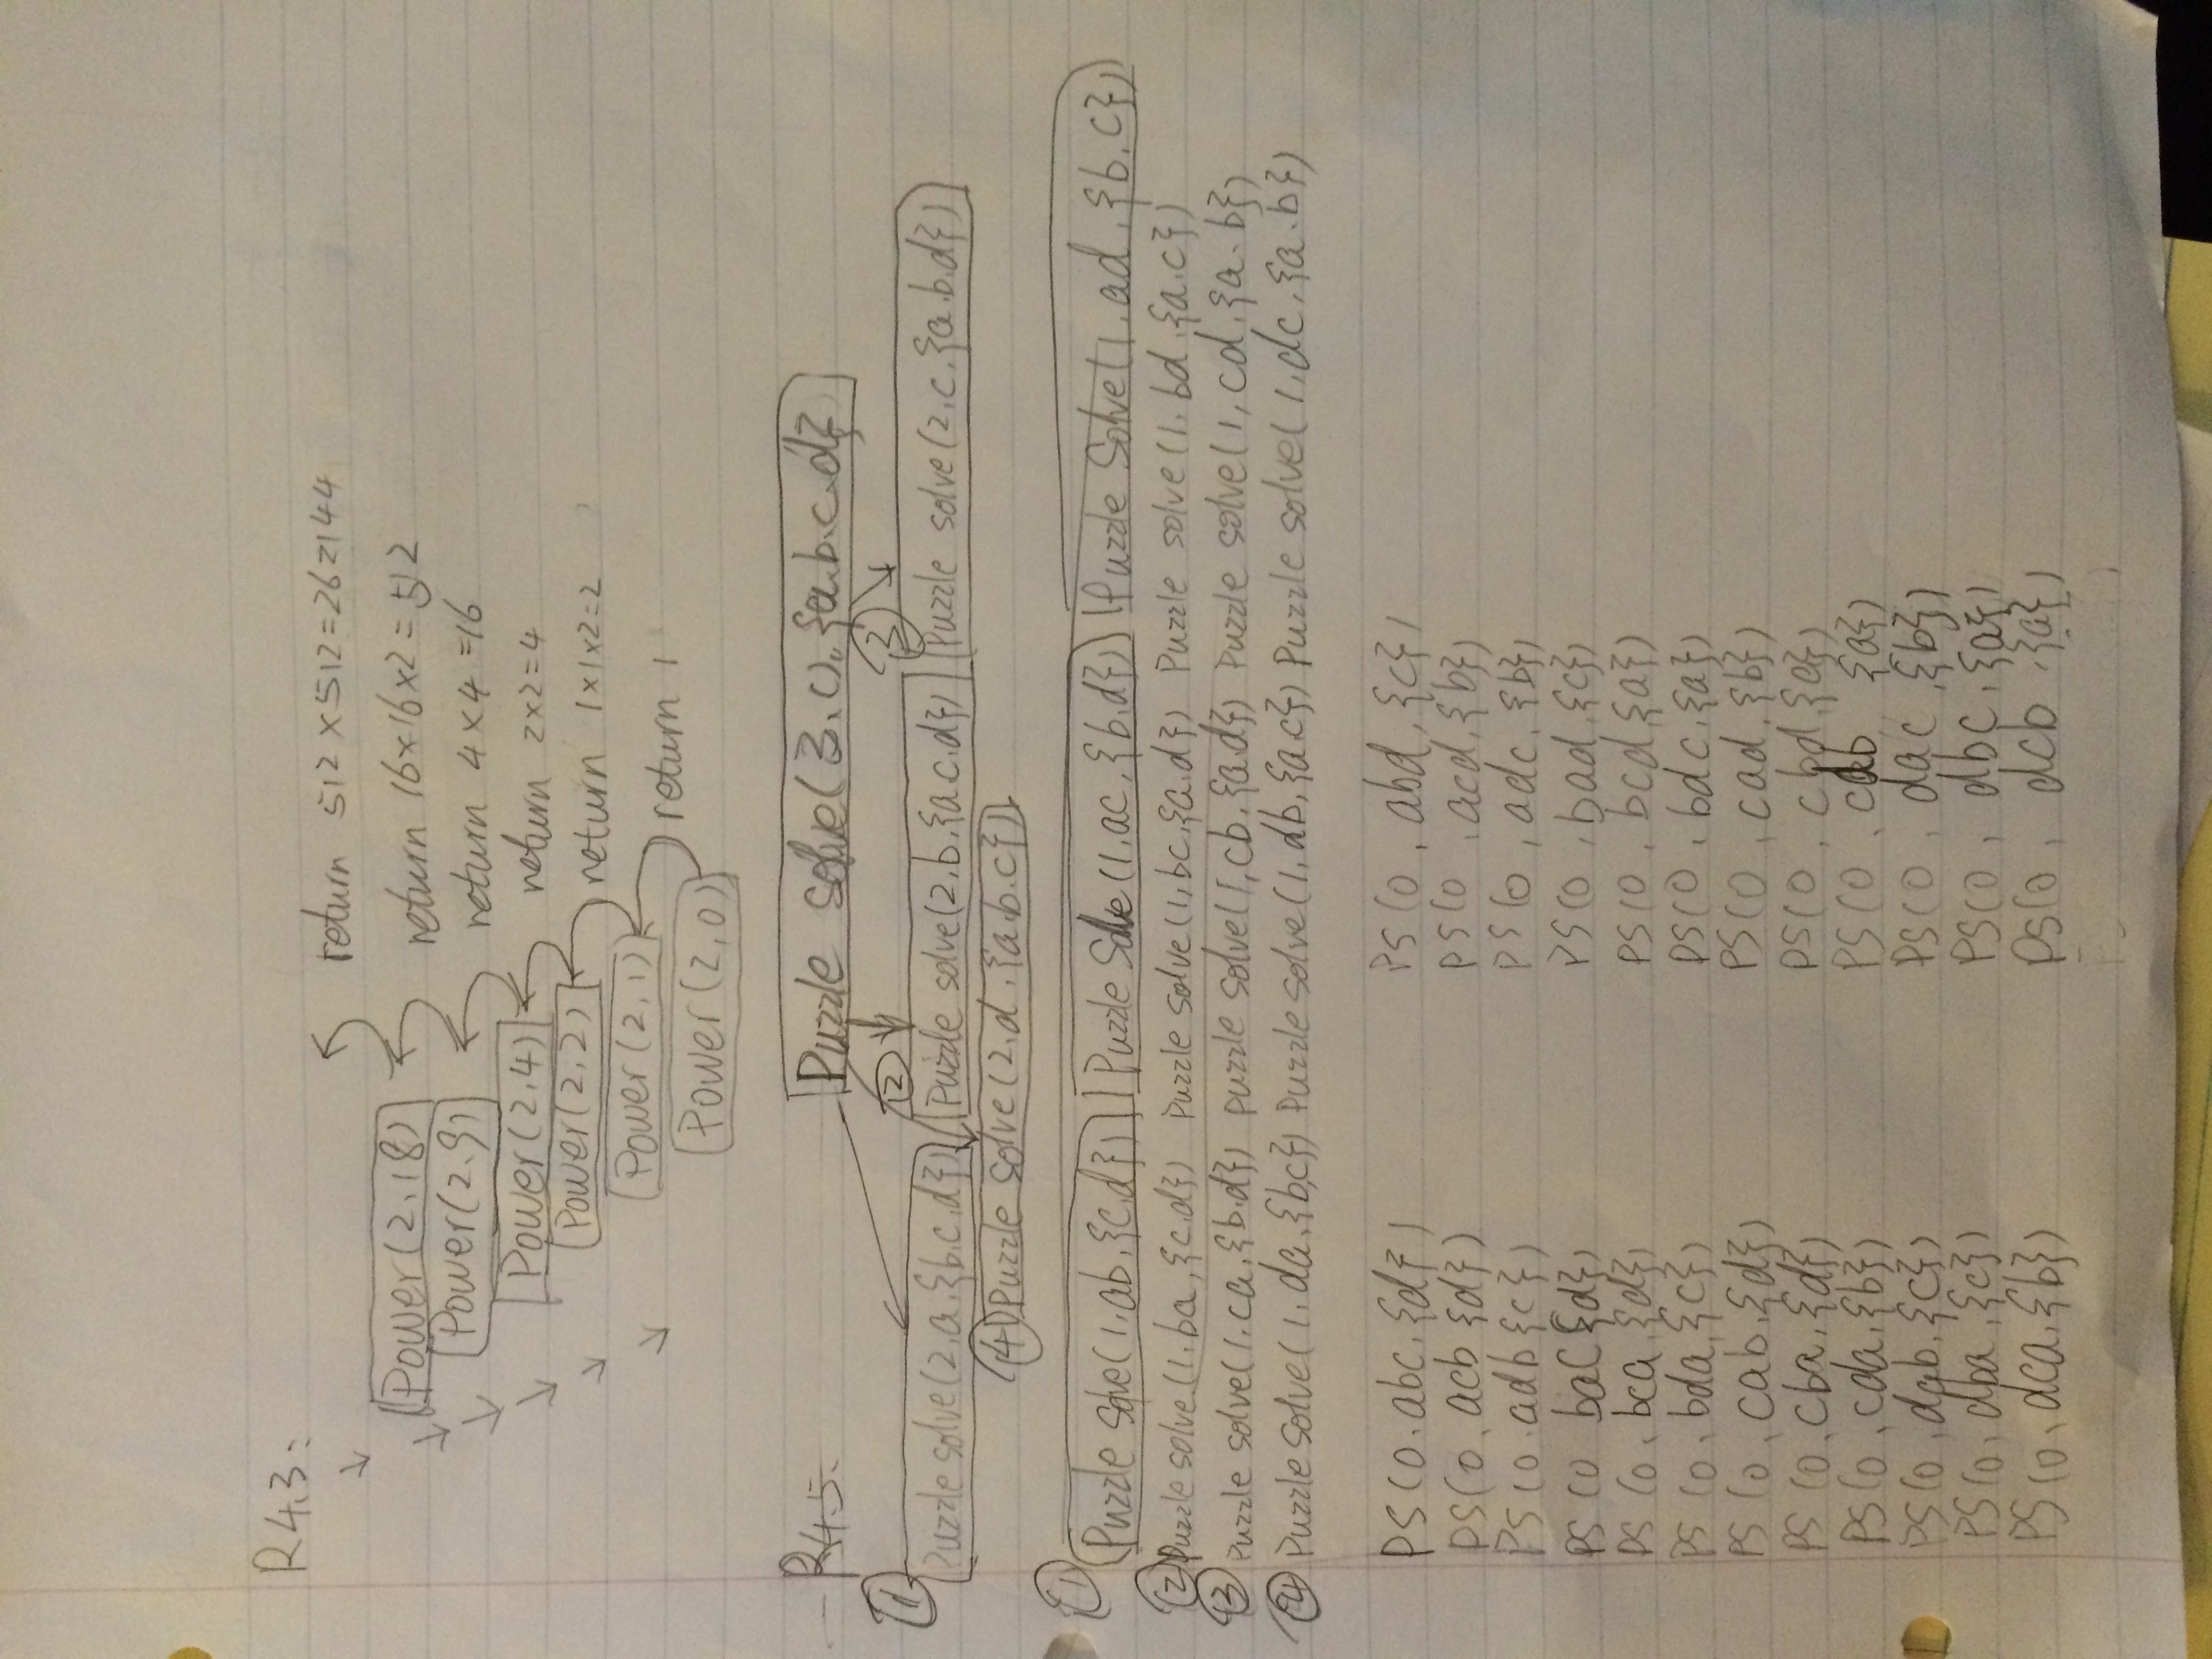 R4.3:
return 512×512=262144
Power(2,18)
return 16×16×2=512
Power(2,9)
return 4×4=16
Power(2,4)
return 2×2=4
Power(2,2)
return 1×1×2=2
Power(2,1)
return 1
Power(2,0)
R4.5.
Puzzle solve(3,(),{a.b.c.d}
① ② ③
Puzzle solve(2,a,{b,c,d}) Puzzle solve(2,b,{a,c,d}) Puzzle solve(2,c,{a,b,d})
④ Puzzle solve(2,d,{a,b,c})
① Puzzle solve(1,ab,{c,d}) Puzzle Solve(1,ac,{b,d}) Puzzle Solve(1,ad,{b,c})
② Puzzle solve(1,ba,{c,d}) Puzzle solve(1,bc,{a,d}) Puzzle solve(1,bd,{a,c})
③ Puzzle solve(1,ca,{b,d}) puzzle solve(1,cb,{a,d}) Puzzle solve(1,cd,{a,b})
④ Puzzle solve(1,da,{b,c}) Puzzle solve(1,db,{a,c}) Puzzle solve(1,dc,{a,b})
PS(0,abc,{d}) PS(0,abd,{c})
PS(0,acb{d}) PS(0,acd,{b})
PS(0,adb{c}) PS(0,adc,{b})
PS(0 bac{d}) PS(0,bad,{c})
PS(0,bca,{d}) PS(0,bcd,{a})
PS(0,bda,{c}) PS(0,bdc,{a})
PS(0,cab,{d}) PS(0,cad,{b})
PS(0,cba,{d}) PS(0,cbd,{a})
PS(0,cda,{b}) PS(0,cdb {a})
PS(0,dab,{c}) PS(0,dac,{b})
PS(0,dba,{c}) PS(0,dbc,{a})
PS(0,dca,{b}) PS(0,dcb,{a})